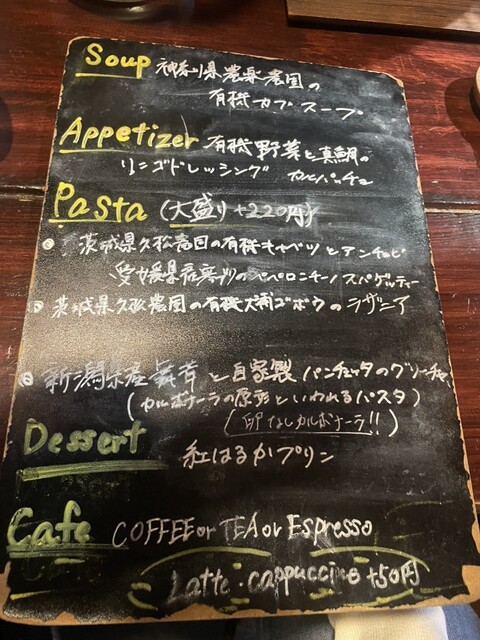 Soup 神奈川県農楽農園の
有機カブスープ
Appetizer 有機野菜と真鯛の
リンゴドレッシング カルパッチョ
Pasta (大盛り+220円)
茨城県久松農園の有機キャベツとアンチョビ
愛媛県産 のペペロンチーノスパゲッティー
茨城県久松農園の有機大浦ゴボウのラザニア
新潟県産舞茸と自家製パンチェッタのグリーチャ
(カルボナーラの原形といわれるパスタ)
(卵なしカルボナーラ!!)
Dessert 紅はるかプリン
Cafe COFFEE or TEA or Espresso
Latte・cappuccino +50円